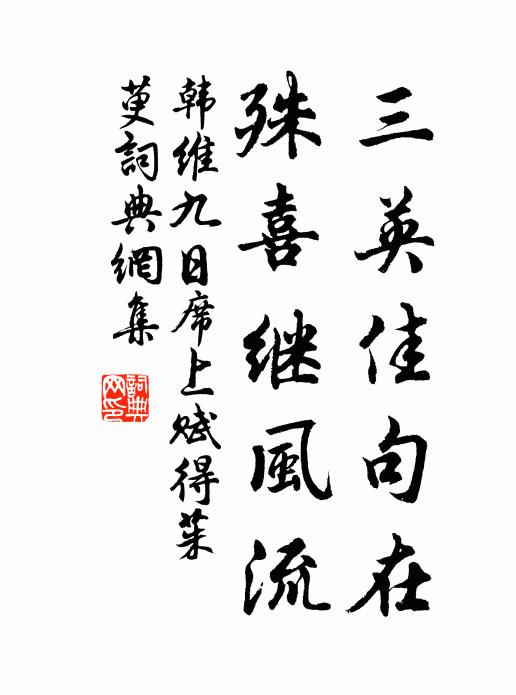 三英佳句在
殊喜继風流
韩維九日席上赋得茱
萸詞典網集
詞典
网印